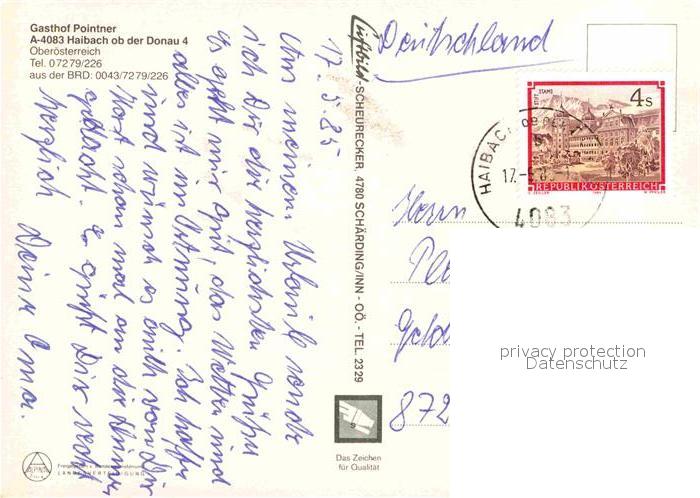 Gasthof Pointner
A-4083 Haibach ob der Donau 4
Oberösterreich
Tel. 07279/226
aus der BRD: 0043/7279/226
17.5.85
Aus meinem Urlaub sende
ich Dir die herzlichsten Grüße
es geht mir gut, das Wetter und
alles ist in Ordnung. Ich hoffe
und wünsche es auch von Dir
Hast schon mal an die
gedacht. Es grüßt Dich recht
herzlich Deine Oma.
Luftbild-SCHEURECKER, 4780 SCHÄRDING/INN - OÖ. - TEL. 2329
Deutschland
STIFT STAMS
4 S
REPUBLIK ÖSTERREICH
HAIBACH OB DER
17.-5.8
4083
Herrn
872
Das Zeichen
für Qualität
ALPINA
privacy protection
Datenschutz